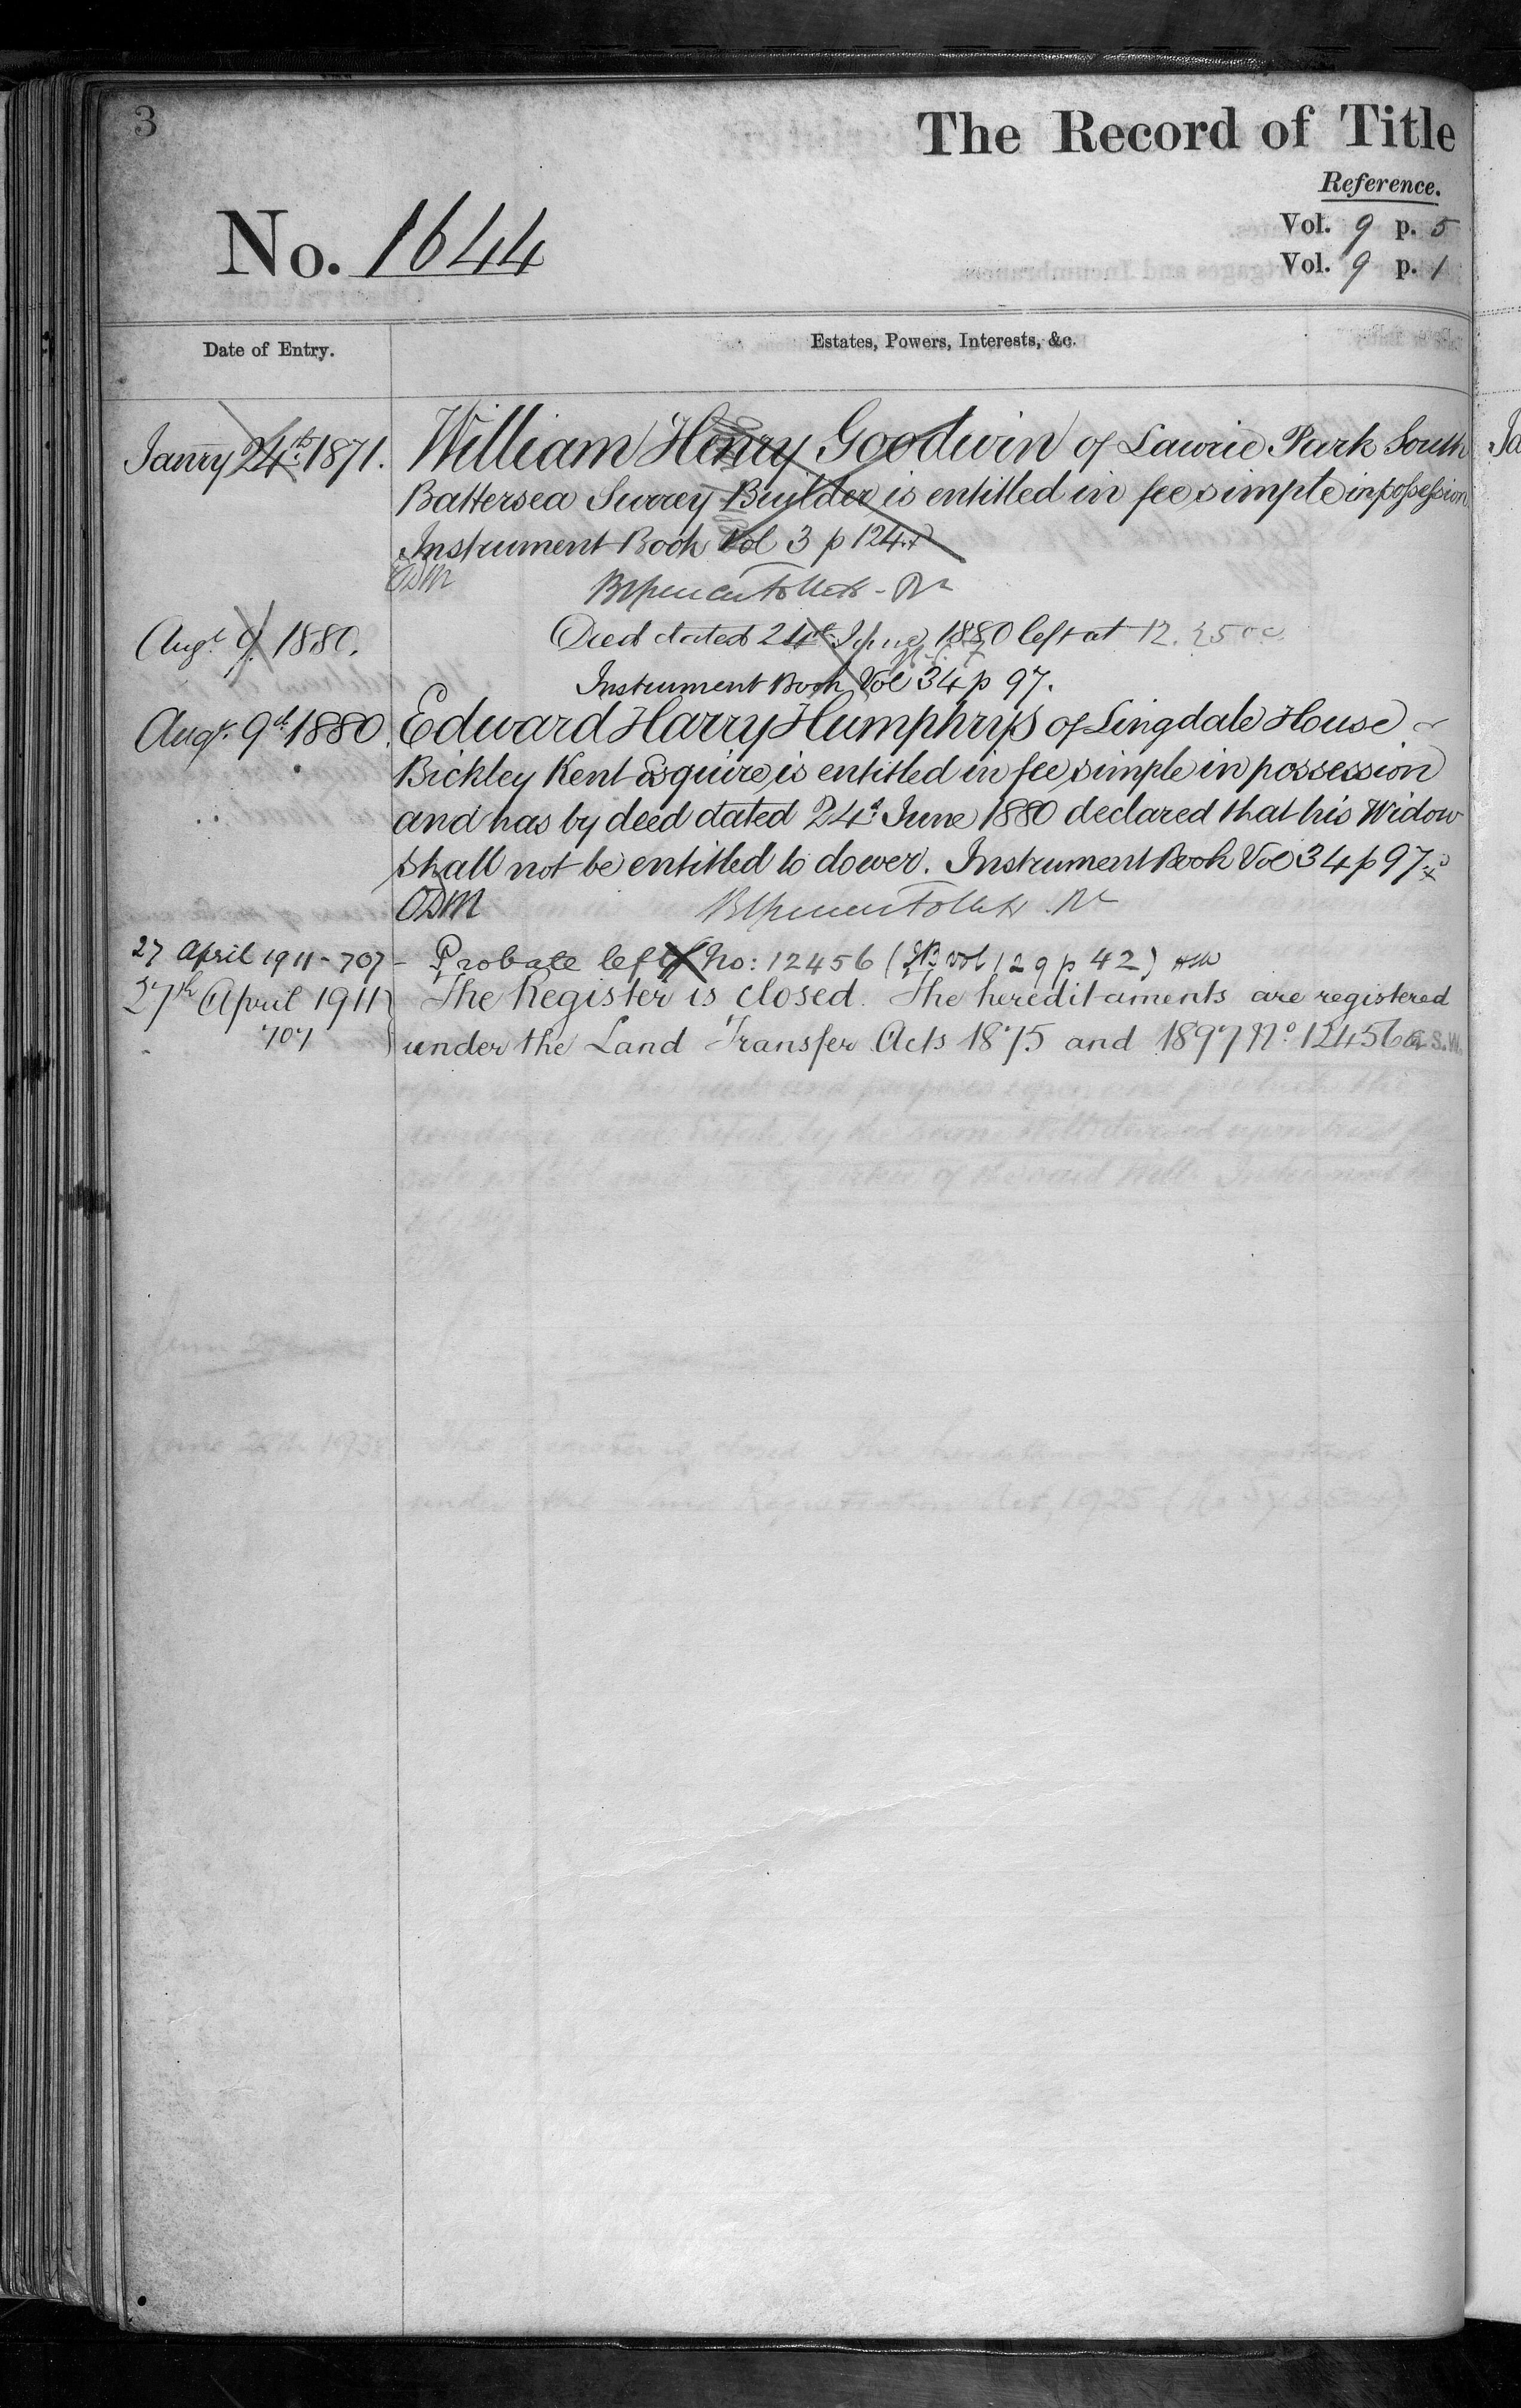 3
The Record of Title
Reference.
No. 1644
Vol. 9 p. 5
Vol. 9 p. 1
Date of Entry.
Estates, Powers, Interests, &c.
Janry 24th 1871. William Henry Goodwin of Lawrie Park South
Battersea Surrey Builder is entitled in fee simple in possession
Instrument Book Vol 3 p 124
ODM
Augt 9. 1880. Deed dated 24th June 1880 left at 12.
Instrument Book Vol 34 p 97.
Augt. 9th 1880. Edward Harry Humphrys of Lingdale House
Bickley Kent Esquire is entitled in fee simple in possession
and has by deed dated 24th June 1880 declared that his Widow
shall not be entitled to dower. Instrument Book Vol 34 p 97
ODM
27 April 1911 - 707 - Probate left No: 12456 (IB vol 129 p 42)
27th April 1911 The Register is closed. The hereditaments are registered
707 under the Land Transfer Acts 1875 and 1897 No 12456